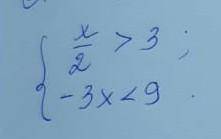 { x/2 > 3 ;
-3x < 9 .